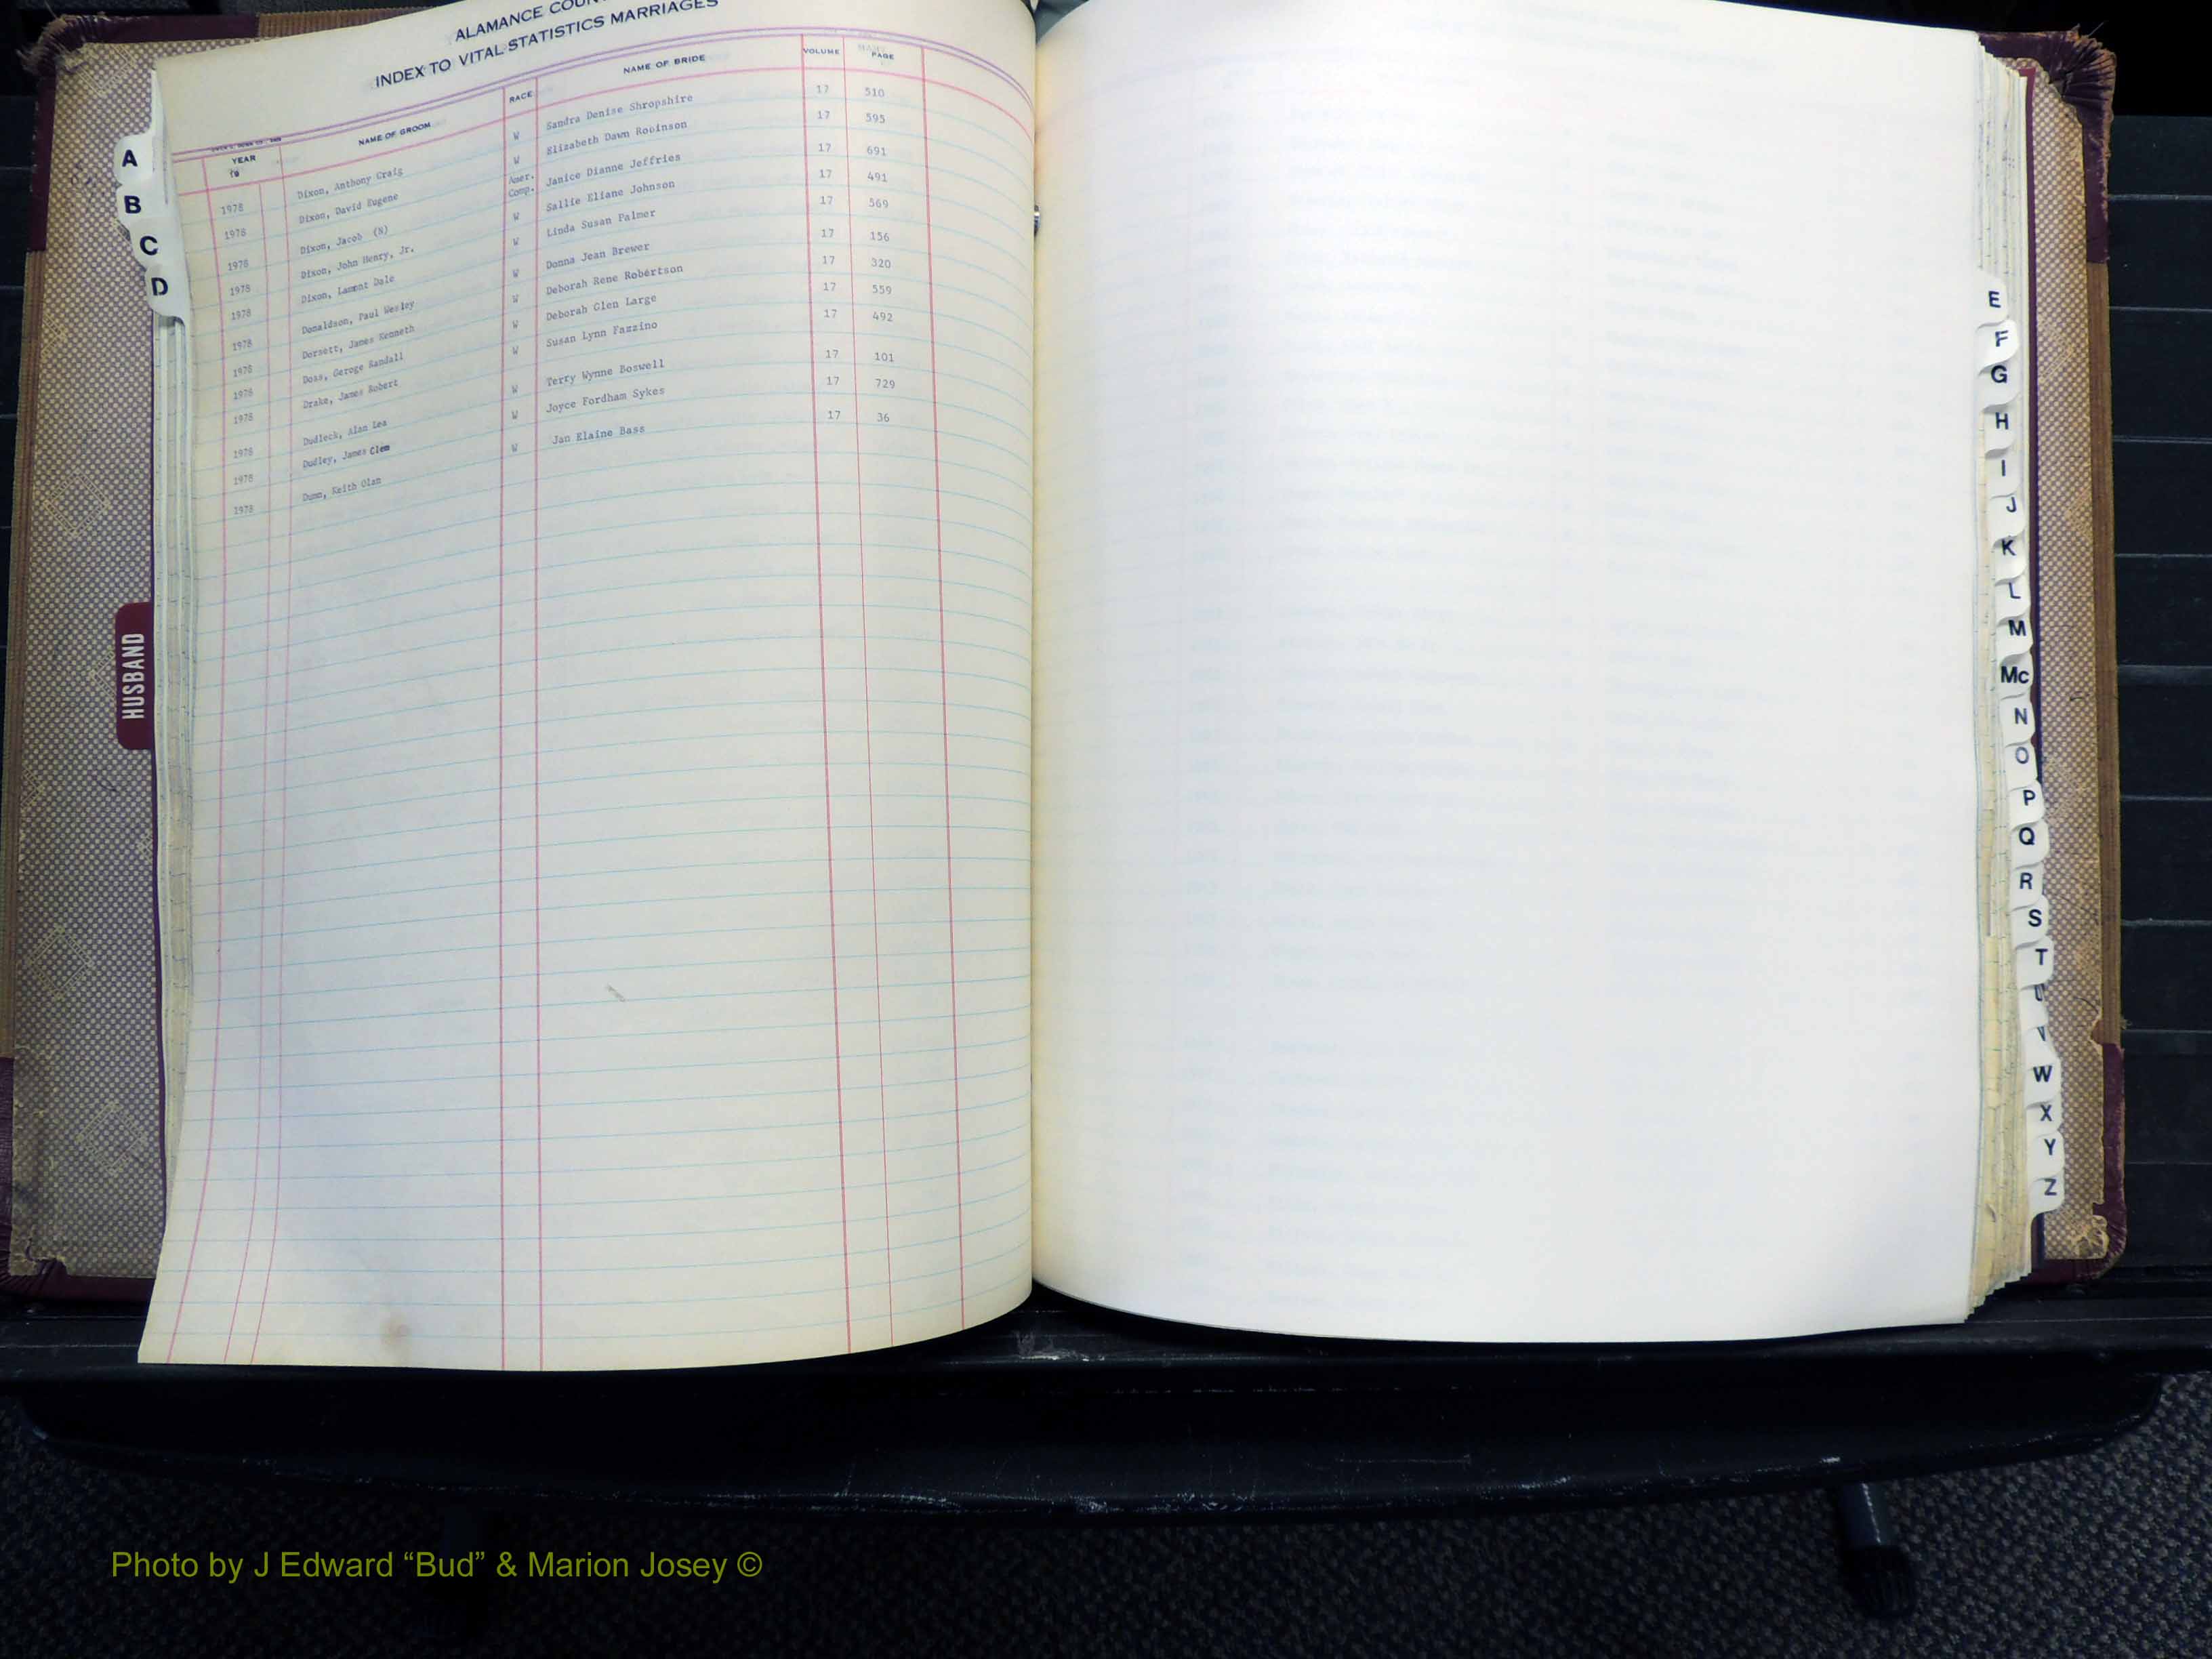 ALAMANCE COUN
INDEX TO VITAL STATISTICS MARRIAGES
YEAR 19 NAME OF GROOM RACE NAME OF BRIDE VOLUME PAGE
1978 Dixon, Anthony Craig W Sandra Denise Shropshire 17 510
1978 Dixon, David Eugene W Elizabeth Dawn Robinson 17 595
1978 Dixon, Jacob (N) Amer. Comp. Janice Dianne Jeffries 17 691
1978 Dixon, John Henry, Jr. W Sallie Eliane Johnson 17 491
1978 Dixon, Lamont Dale W Linda Susan Palmer 17 569
1978 Donaldson, Paul Wesley W Donna Jean Brewer 17 156
1978 Dorsett, James Kenneth W Deborah Rene Robertson 17 320
1978 Doss, Geroge Randall W Deborah Glen Large 17 559
1978 Drake, James Robert W Susan Lynn Fazzino 17 492
1978 Dudleck, Alan Lea W Terry Wynne Boswell 17 101
1978 Dudley, James Clem W Joyce Fordham Sykes 17 729
1978 Dunn, Keith Olan W Jan Elaine Bass 17 36
A
B
C
D
HUSBAND
E
F
G
H
I
J
K
L
M
Mc
N
O
P
Q
R
S
T
U
V
W
X
Y
Z
Photo by J Edward “Bud” & Marion Josey ©